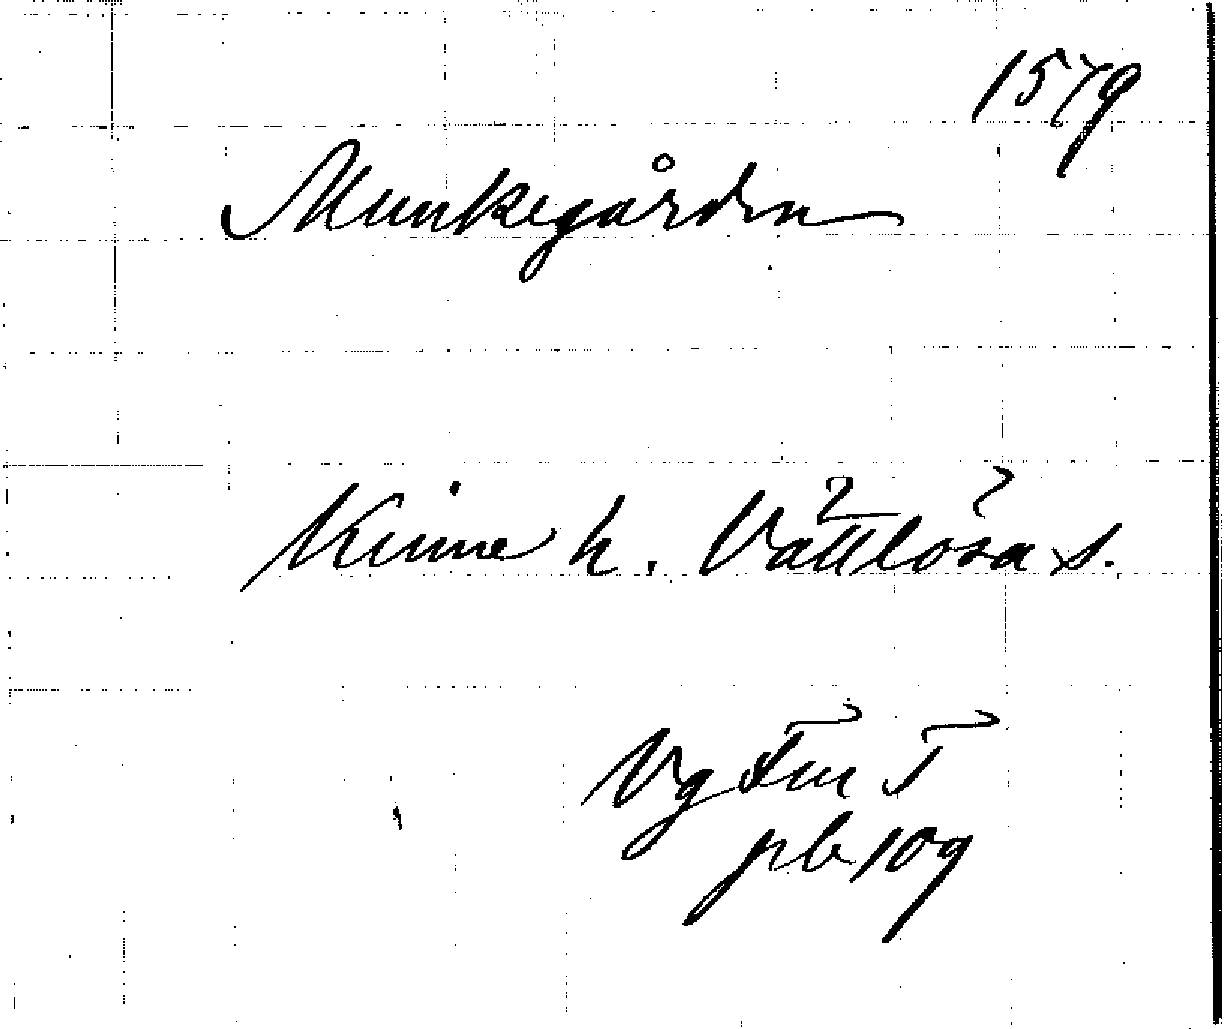 1579
Munkegården
Kinne h. Vättlösa s.
Vg
pb 109